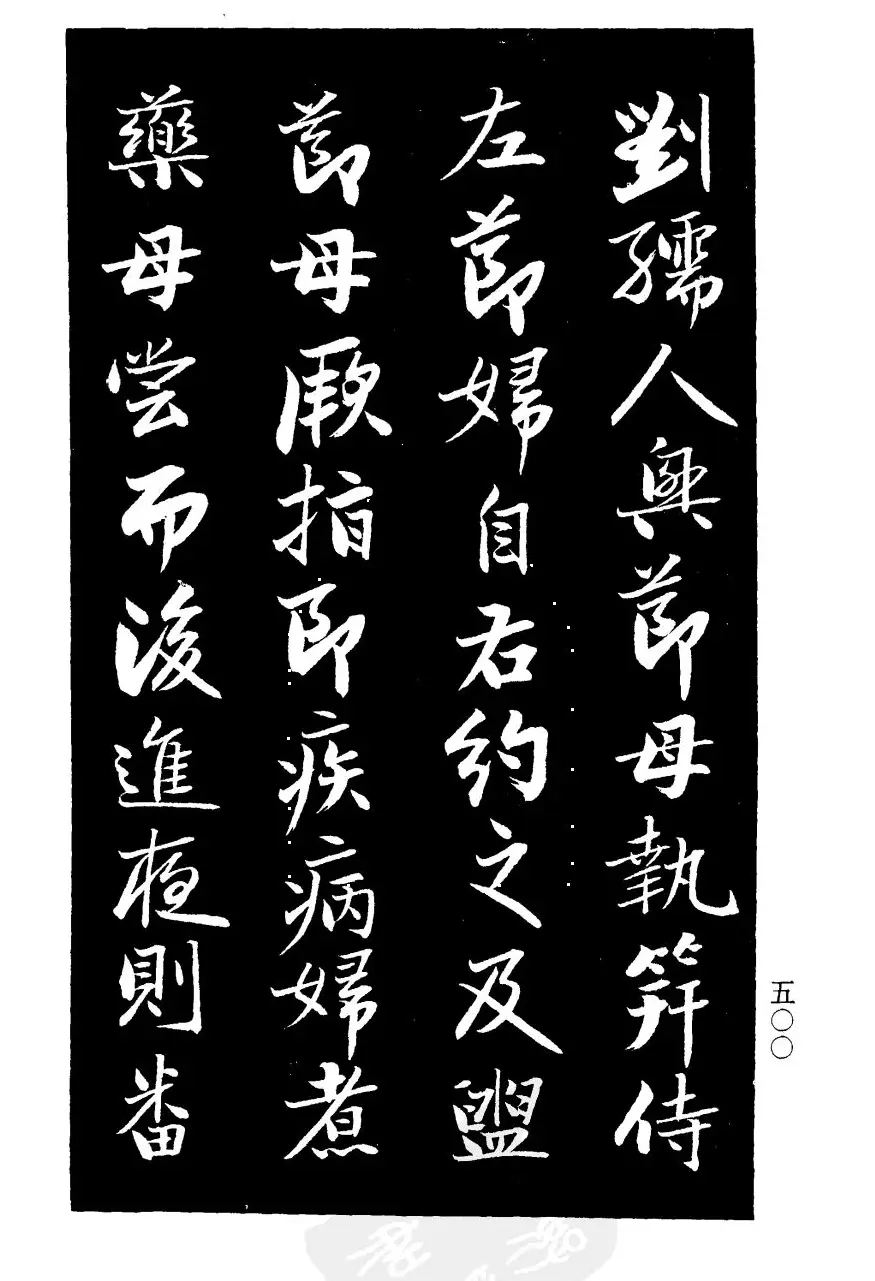 劉孺人與節母執笄侍
左節婦自右約之及盥
節母厥指即疾病婦煮
藥母嘗而後進夜則番
五〇〇